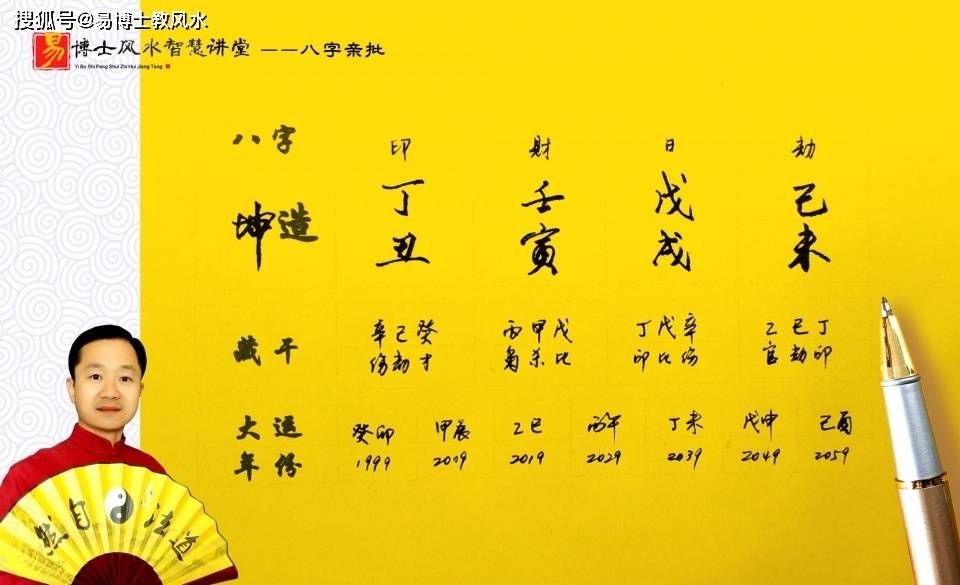 搜狐号@易博士教风水
易 博士风水智慧讲堂 ——八字亲批
Yi Bo Shi Feng Shui Zhi Hui Jiang Tang
八字 印 财 日 劫
坤造 丁 壬 戊 己
丑 寅 戌 未
藏干 辛己癸 丙甲戊 丁戊辛 乙己丁
伤劫才 枭杀比 印比伤 官劫印
大运 癸卯 甲辰 乙巳 丙午 丁未 戊申 己酉
年份 1999 2009 2019 2029 2039 2049 2059
然自法道